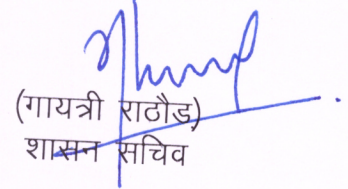 (गायत्री राठौड़)
शासन सचिव